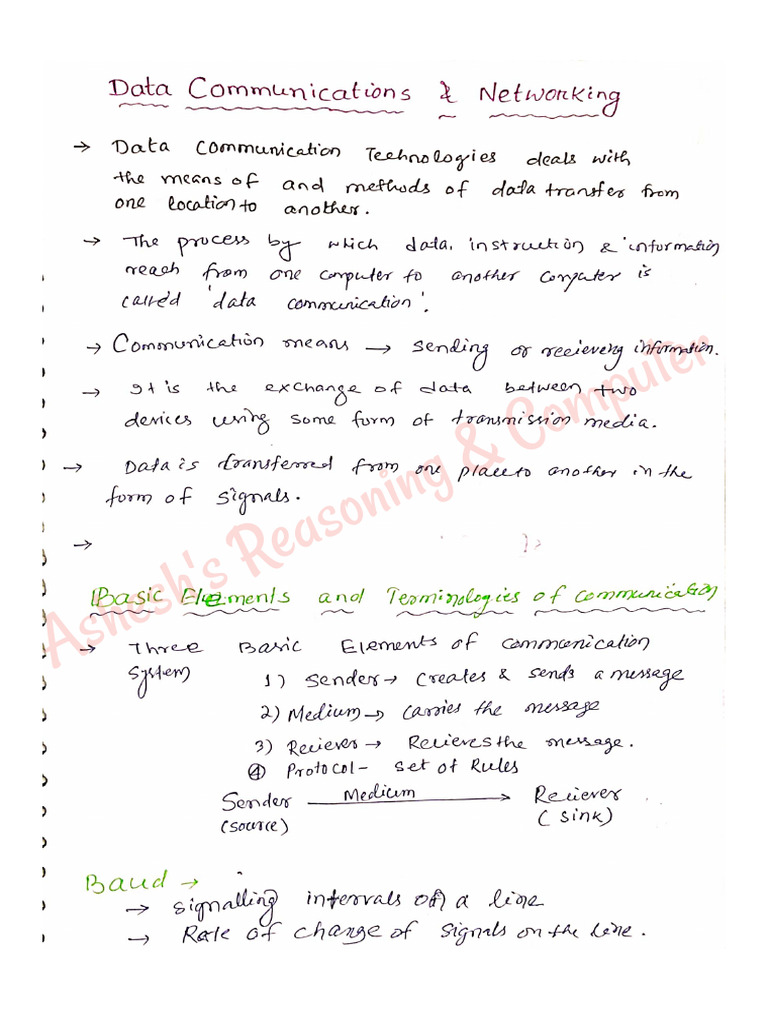 Data Communications & Networking
→ Data Communication Technologies deals with
the means of and methods of data transfer from
one location to another.
→ The process by which data, instruction & information
reach from one computer to another computer is
called 'data communication'.
→ Communication means → sending or recieveng information.
→ It is the exchange of data between two
devices using some form of transmission media.
→ Data is transferred from one place to another in the
form of signals.
→
Basic Elements and Terminologies of communication
→ Three Basic Elements of communication
System
1) Sender → Creates & sends a message
2) Medium → Carries the message
3) Reciever → Recieves the message.
④ Protocol - Set of Rules
Sender Medium → Reciever
(source) (sink)
Baud →
→ Signalling intervals of a line
→ Rate of change of signals on the line.
Ashesh's Reasoning & Computer